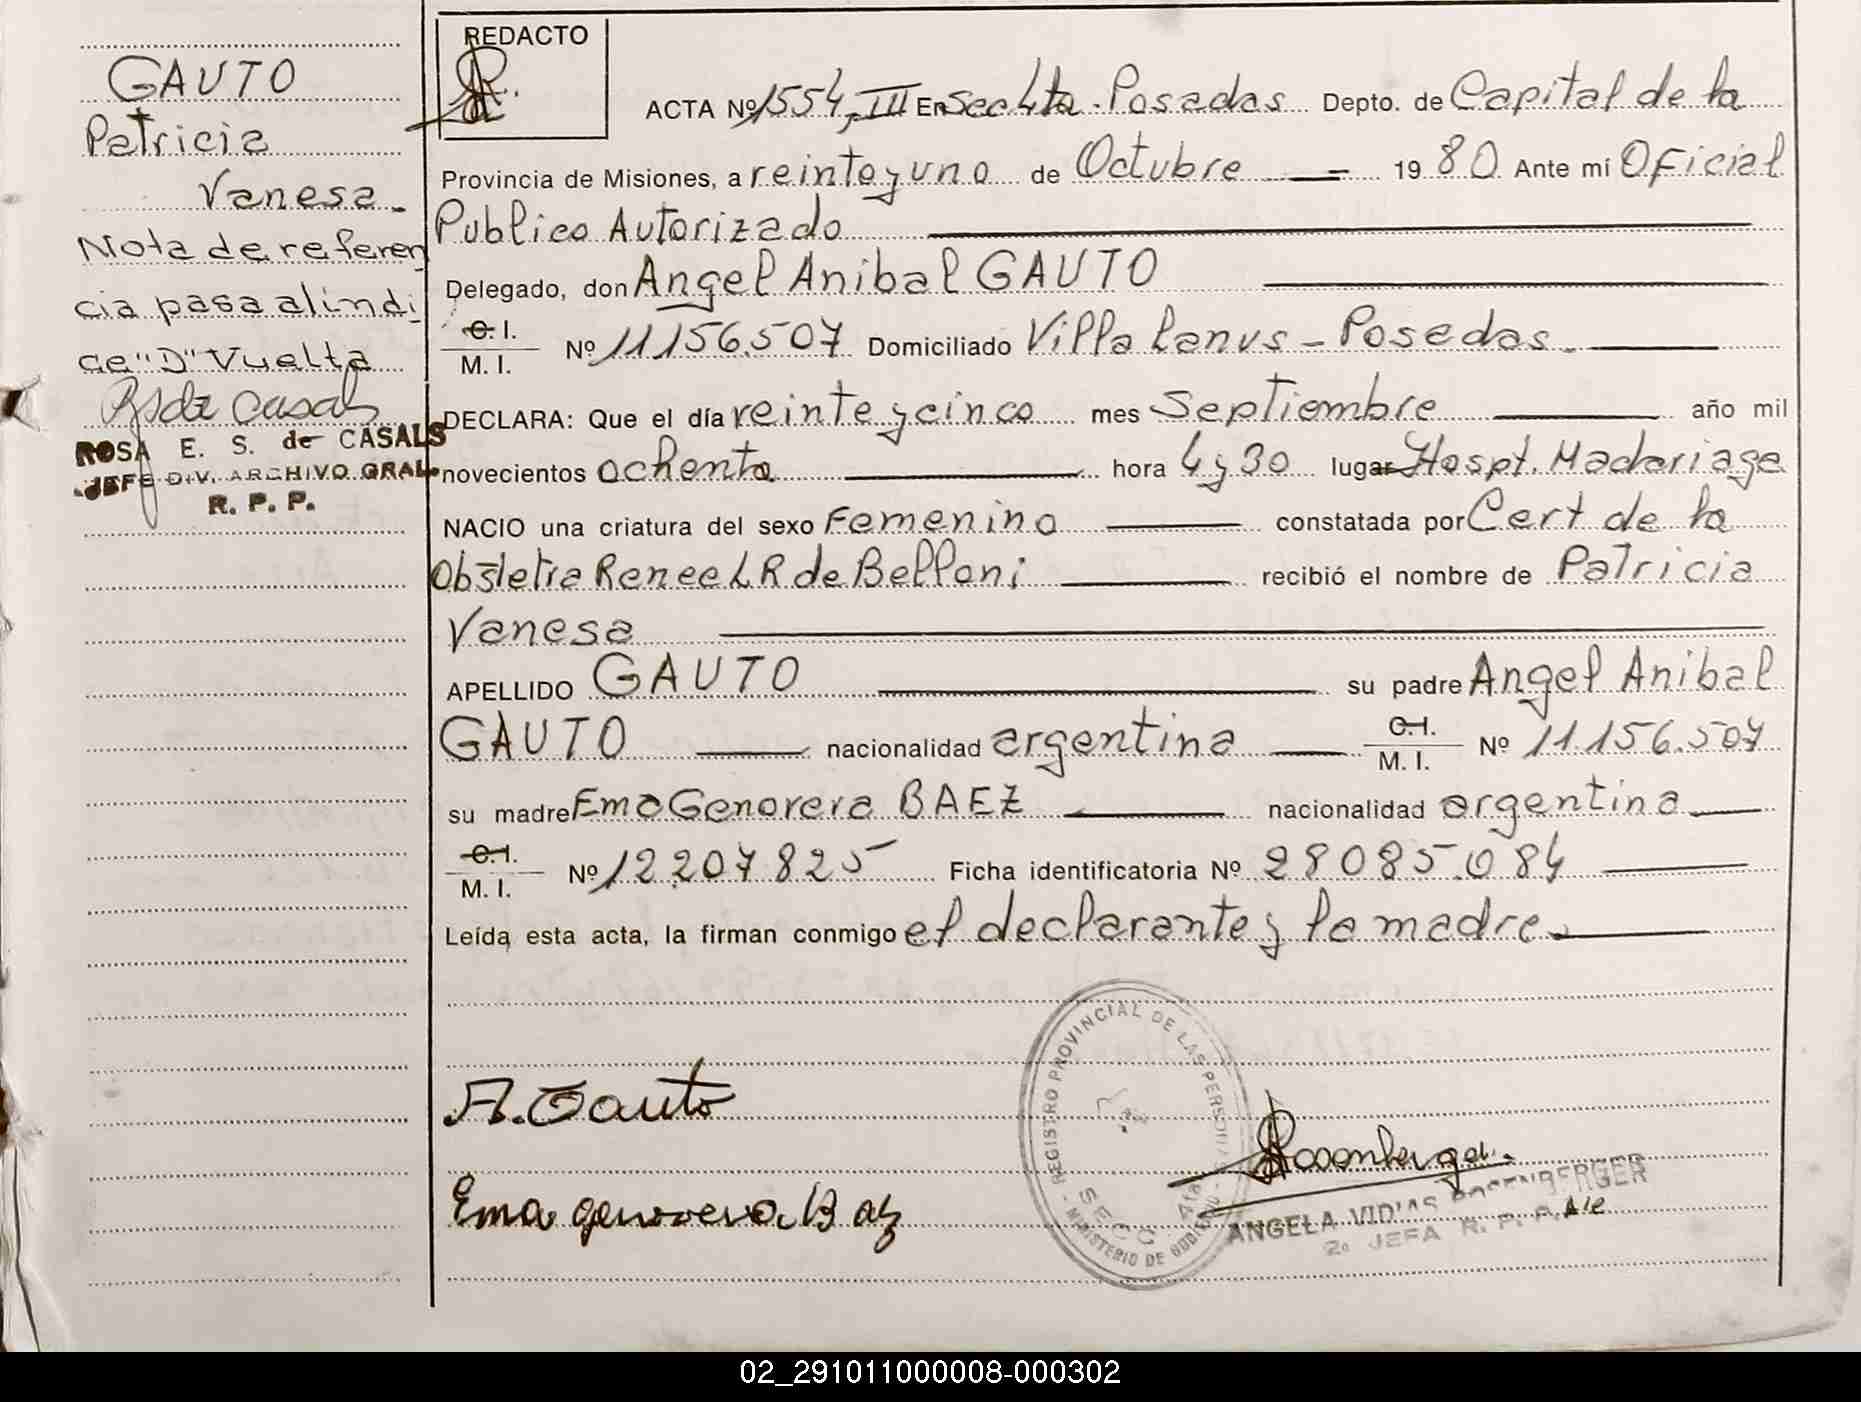 GAUTO
Patricia
Vanesa.
Nota de referen
cia pasa al indi
ce "D" Vuelta
Rosa de Casals
ROSA E. S. de CASALS
JEFE DIV. ARCHIVO GRAL.
R. P. P.
REDACTO
ACTA Nº 1554, III En Sec 4ta. Posadas Depto. de Capital de la
Provincia de Misiones, a veinte y uno de Octubre 1980 Ante mí Oficial
Publico Autorizado
Delegado, don Angel Anibal GAUTO
C. I.
M. I. Nº 11.156.507 Domiciliado Villa Lanus - Posadas.
DECLARA: Que el día veinte y cinco mes Septiembre año mil
novecientos ochenta hora 4 y 30 lugar Hospt. Madariaga
NACIO una criatura del sexo Femenino constatada por Cert de la
Obstetra Renee L R de Belloni recibió el nombre de Patricia
Vanesa
APELLIDO GAUTO su padre Angel Anibal
GAUTO nacionalidad argentina C. I. M. I. Nº 11.156.507
su madre Ema Genoveva BAEZ nacionalidad argentina
C. I.
M. I. Nº 12.207825 Ficha identificatoria Nº 28085.084
Leída esta acta, la firman conmigo el declarante y la madre.
A. Gauto
Ema genoveva Baez
REGISTRO PROVINCIAL DE LAS PERSONAS - MINISTERIO DE GOBIERNO -
SECC. 4ta
Rosenberger
ANGELA VIDMAS ROSENBERGER
2º JEFA R. P. P. A/c
02_291011000008-000302